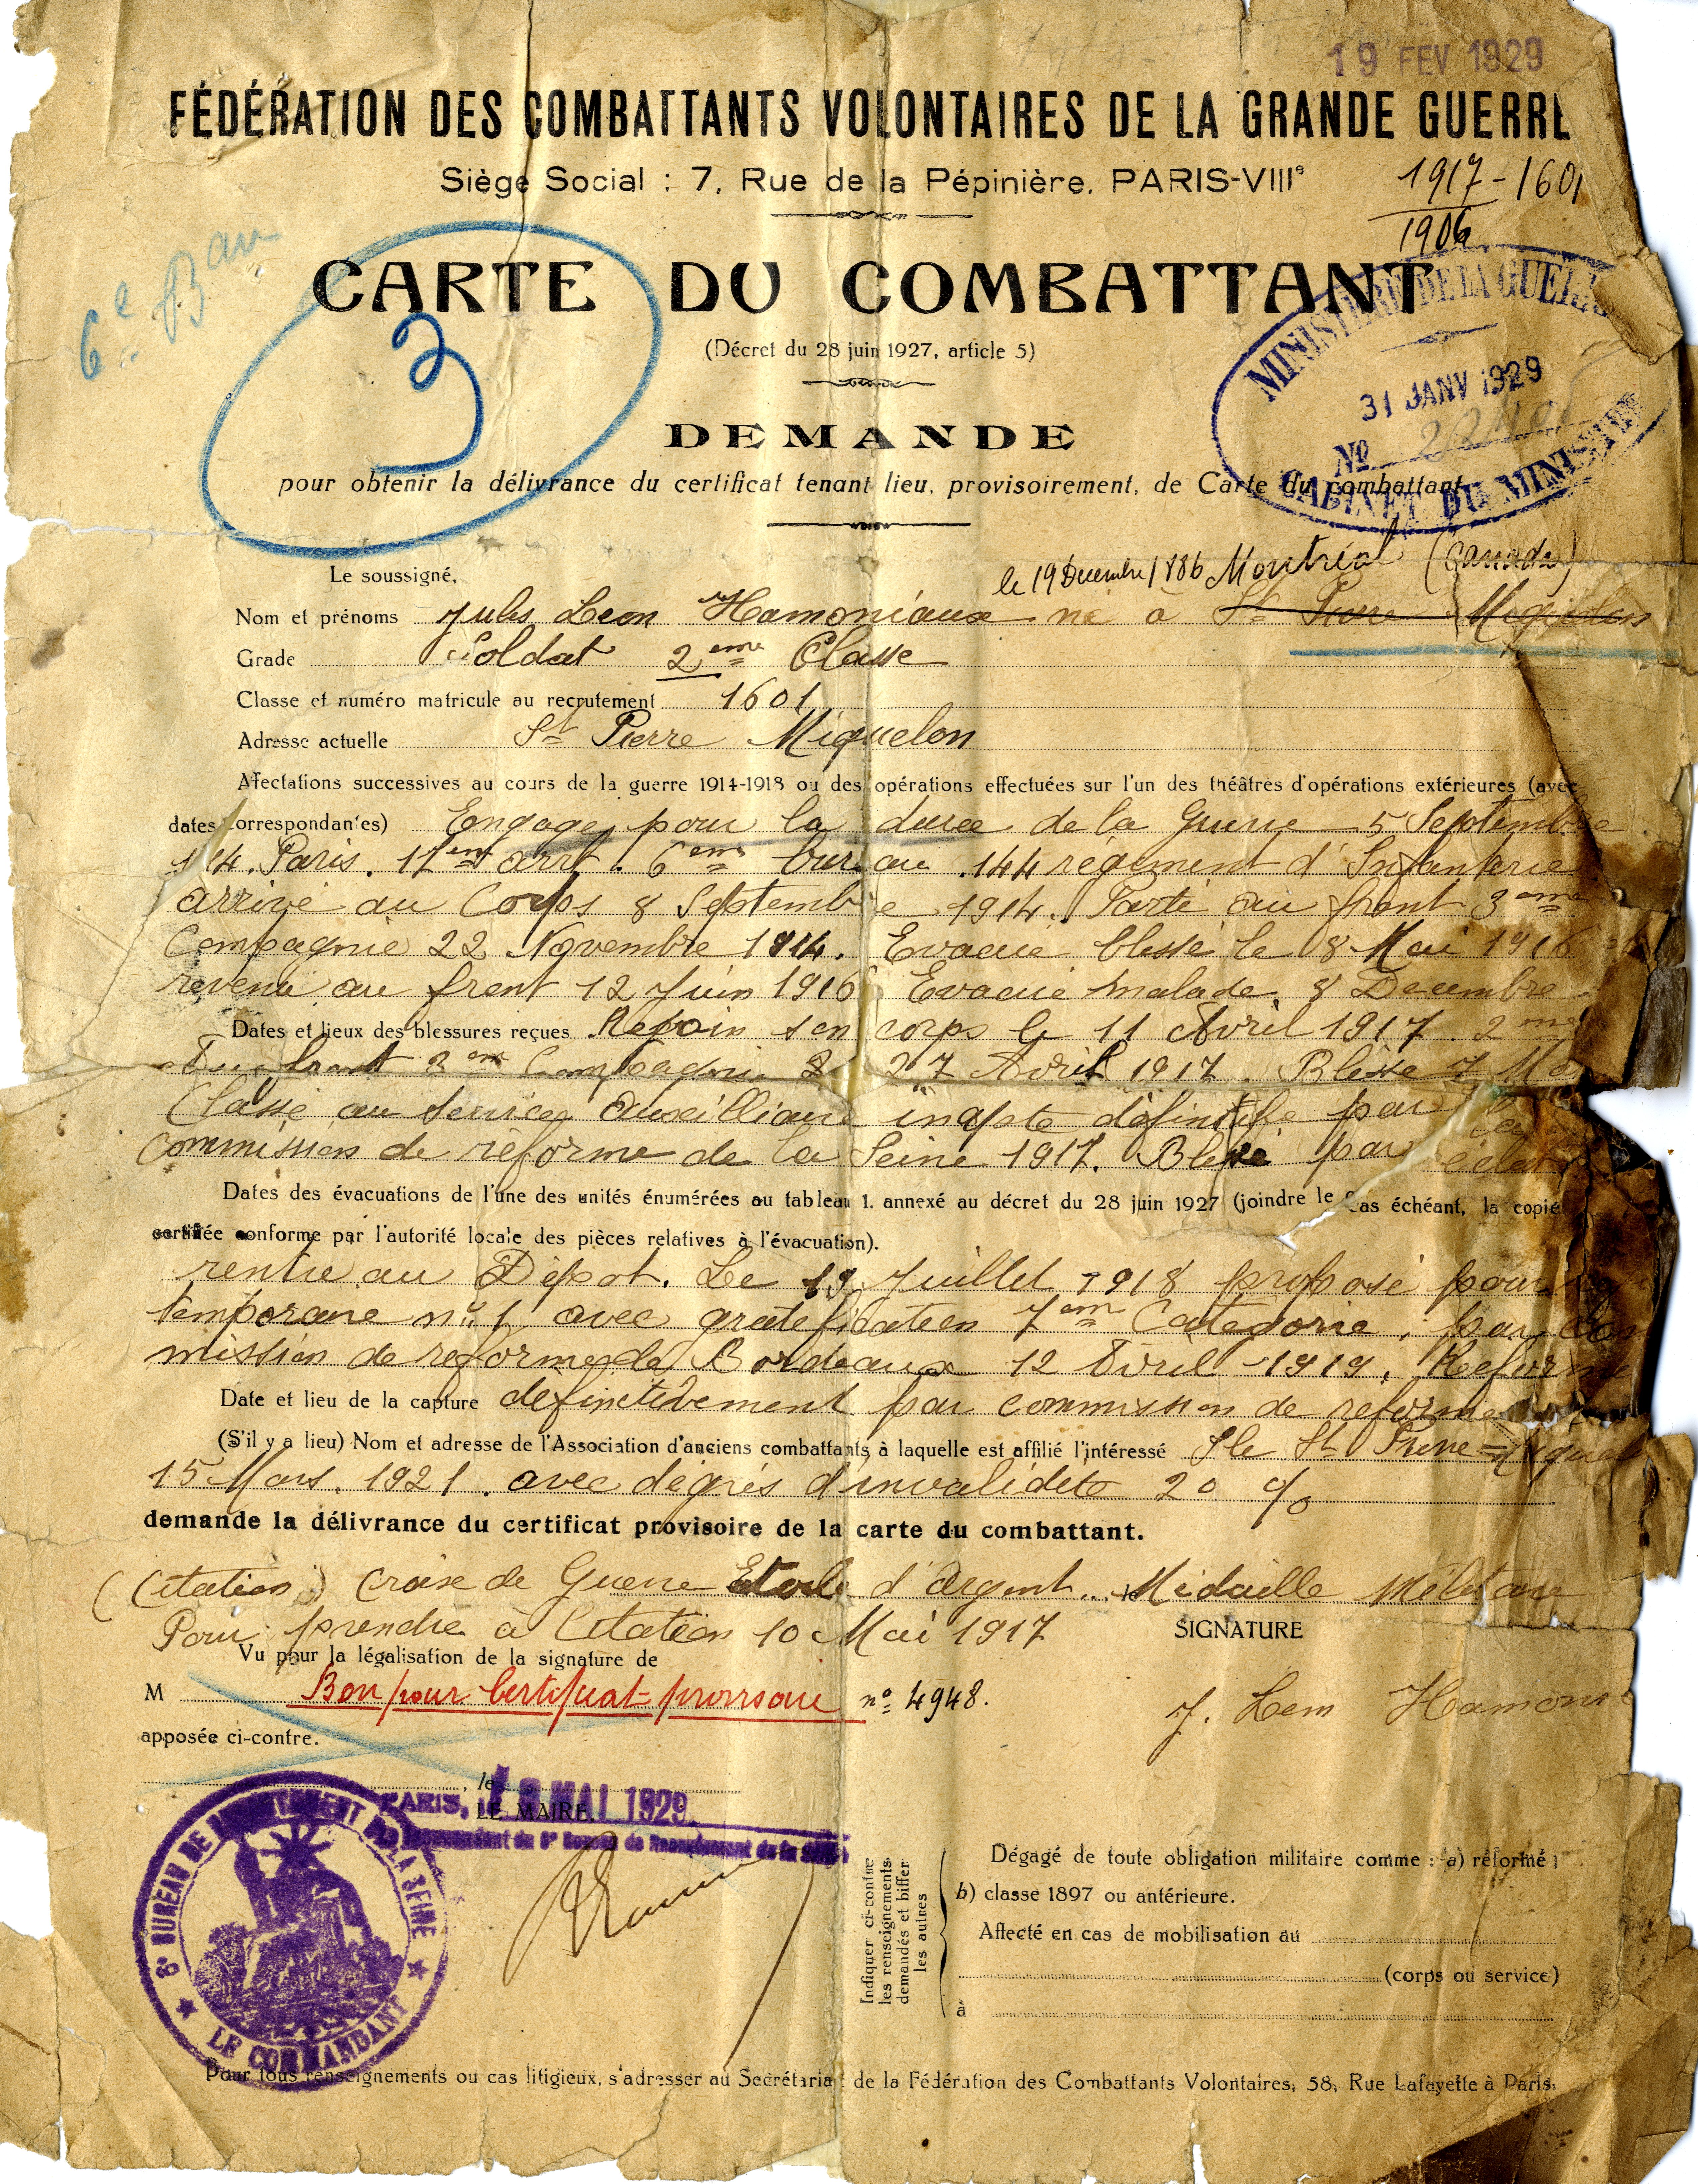 19 FEV 1929
FÉDÉRATION DES COMBATTANTS VOLONTAIRES DE LA GRANDE GUERRE
Siège Social : 7, Rue de la Pépinière, PARIS-VIIIe
1917 - 1601
1906
6e Bau
3
CARTE DU COMBATTANT
(Décret du 28 juin 1927, article 5)
MINISTERE DE LA GUERRE
31 JANV 1929
No
CABINET DU MINISTRE
DEMANDE
pour obtenir la délivrance du certificat tenant lieu, provisoirement, de Carte du combattant
le 19 Decembre 1886 Montréal (Canada)
Le soussigné,
Nom et prénoms Jules Leon Hamoniaux né a St Pierre Miquelon
Grade Soldat 2eme Classe
Classe et numéro matricule au recrutement 1601
Adresse actuelle St Pierre Miquelon
Affectations successives au cours de la guerre 1914-1918 ou des opérations effectuées sur l'un des théâtres d'opérations extérieures (avec
dates correspondantes) Engage pour la duree de la Guerre 5 Septembre
14. Paris. 11em arrt. 6em bureau. 144 régiment d'Infanterie
arrivé au Corps 8 Septembre 1914. Parti au front 3eme
Compagnie 22 Novembre 1914. Evacué blessé le 8 Mai 1916
revenu au front 12 Juin 1916 Evacué malade. 8 Decembre
Dates et lieux des blessures reçues Rejoin son corps le 11 Avril 1917. 2me
front 3em Compagnie 27 Avril 1917. Blesse 7 Ma
Classé au service auxilliaire inapte définitife par
commission de réforme de la Seine 1917. Blessé par éclat
Dates des évacuations de l'une des unités énumérées au tableau 1. annexé au décret du 28 juin 1927 (joindre le cas échéant, la copie
certifiée conforme par l'autorité locale des pièces relatives à l'évacuation).
rentre au Dépot. Le 19 Juillet 1918 proposé pour
temporaire no 1 avec gratification 7em Categorie, par Com
mission de reforme de Bordeaux 12 Avril 1919, Reforme
Date et lieu de la capture definitivement par commission de reforme
(S'il y a lieu) Nom et adresse de l'Association d'anciens combattants à laquelle est affilié l'intéressé Ile St Pierre = Miquel
15 Mars. 1921. avec dégrés d'invalidete 20 %
demande la délivrance du certificat provisoire de la carte du combattant.
(Citation) Croix de Guerre Etoile d'Argent... Médaille Militaire
Pour prendre a Citation 10 Mai 1917
SIGNATURE
Vu pour la légalisation de la signature de
M Bon pour Certificat provisoire no 4948.
J. Leon Hamoni
apposée ci-contre.
, le
PARIS, 18 MAI 1929
LE MAIRE,
6e BUREAU DE RECRUTEMENT DE LA SEINE
LE COMMANDANT
Commandant du 6e Bureau de Recrutement de la Seine
Indiquer ci-contre
les renseignements
demandés et biffer
les autres
Dégagé de toute obligation militaire comme : a) réformé ;
b) classe 1897 ou antérieure.
Affecté en cas de mobilisation au
(corps ou service)
à
Pour tous renseignements ou cas litigieux, s'adresser au Secrétariat de la Fédération des Combattants Volontaires, 58, Rue Lafayette à Paris.